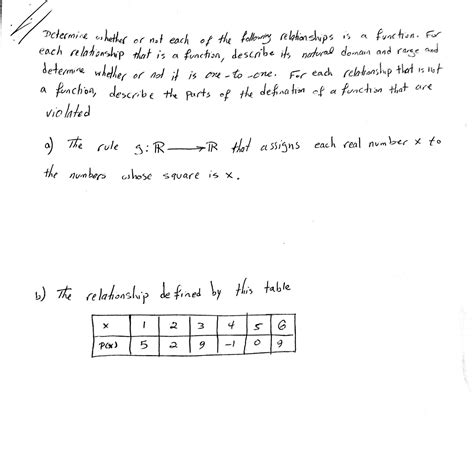 Determine whether or not each of the following relationships is a function. For
each relationship that is a function, describe its natural domain and range and
determine whether or not it is one-to-one. For each relationship that is not
a function, describe the parts of the defination of a function that are
violated
a) The rule g: ℝ → ℝ that assigns each real number x to
the numbers whose square is x.
b) The relationship defined by this table
x 1 2 3 4 5 6
P(x) 5 2 9 -1 0 9